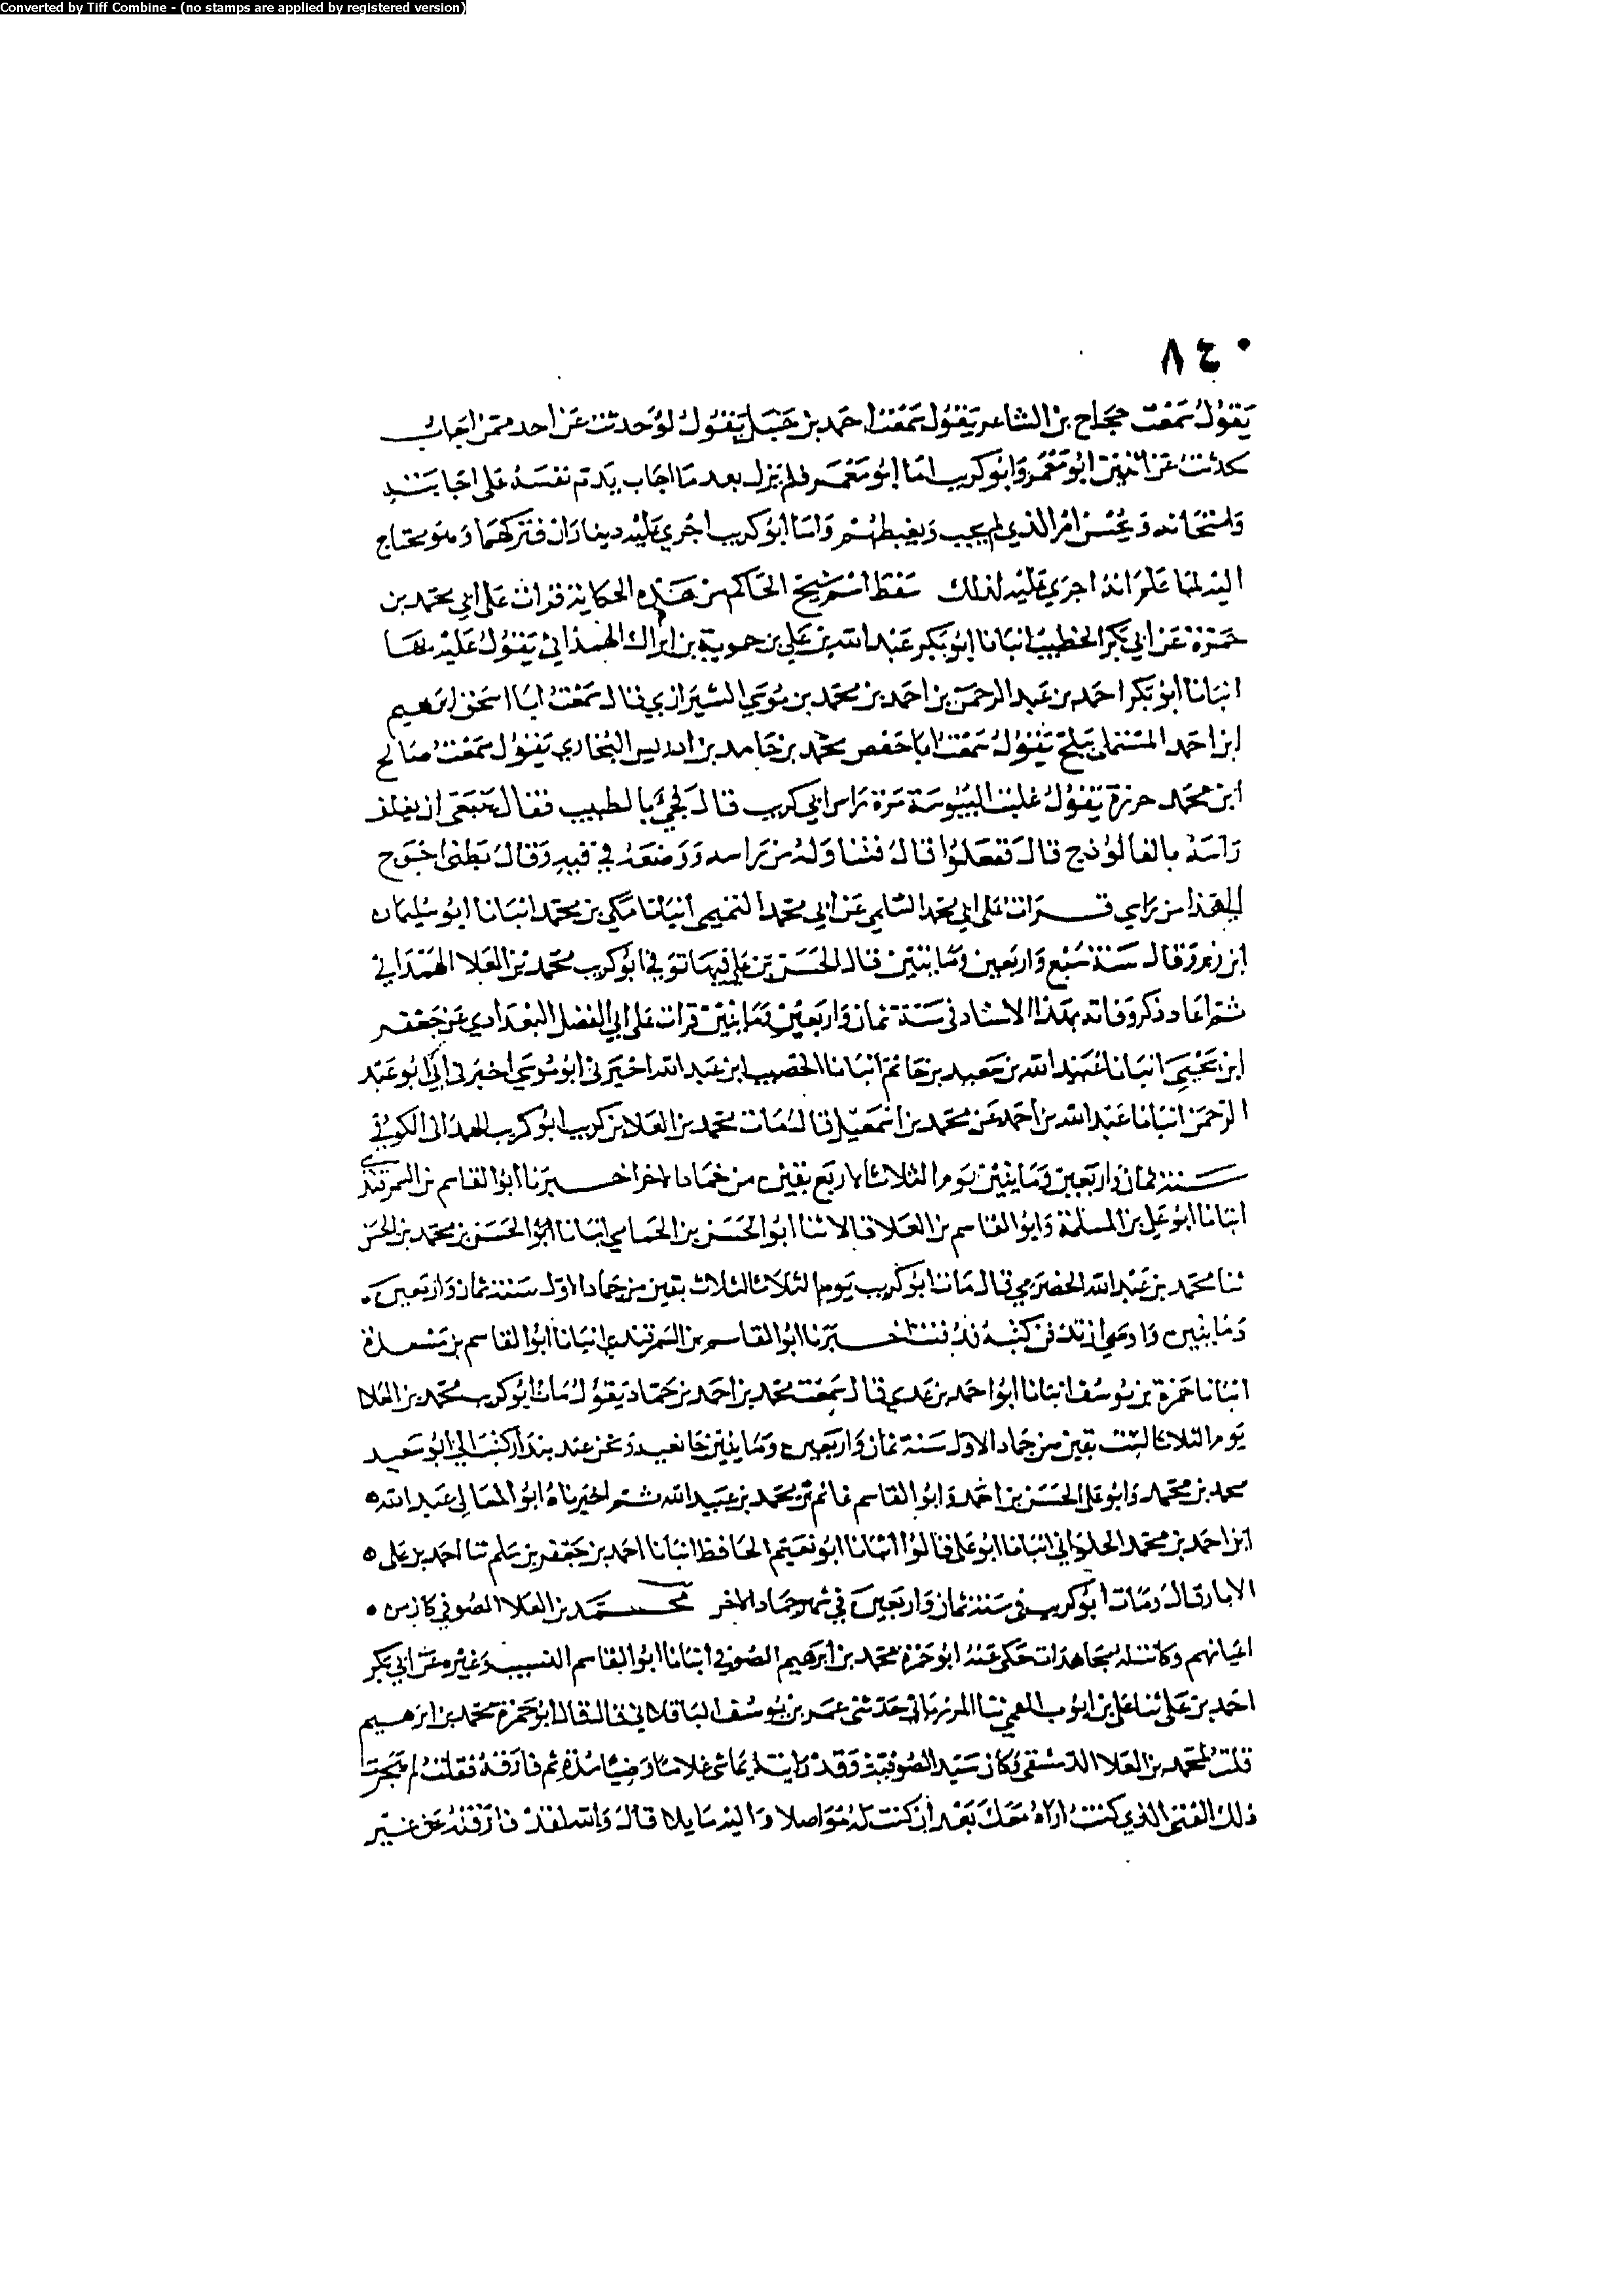 Converted by Tiff Combine - (no stamps are applied by registered version)
يقول سمعت حجاج بن الشاعر يقول سمعت احمد بن حنبل يقول لو حدثت عن احد ممن اجاب
لحدثت عن اثنين ابو معمر وابو كريب اما ابو معمر فلم يزل بعد ما اجاب يذم نفسه على اجابته
وامتحانه ويحسن امر الذي لم يجب ويغبطهم واما ابو كريب اجري عليه ديناران فتركهما وهو محتاج
اليه لما علم انه اجري عليه لذلك سقط اسم شيخ الحاكم من هذه الحكاية قرات على ابي محمد بن
حمزة عن ابي بكر الخطيب انبانا ابو بكر عبد الله بن علي بن حموية بن ابراك الهمذاني يقول عليه بها
انبانا ابو بكر احمد بن عبد الرحمن بن احمد بن محمد بن موسي الشيرازي قال سمعت ابا اسحق ابرهيم
ابن احمد المستملي ببلخ يقول سمعت ابا حفص محمد بن حامد بن ادريس البخاري يقول سمعت صالح
ابن محمد جزرة يقول غلبت اليبوسة مرة راس ابي كريب قال فجئ بالطبيب فقال ينبغي ان يغلف
راسه بالفالوذج قال ففعلوا قال فتناوله من راسه ووضعه في فيه وقال بطني احوج
الي هذا من راسي قرات على ابي محمد السلمي عن ابي محمد التميمي انبانا مكي بن محمد انبانا ابو سليمان
ابن زبر وقال سنة سبع واربعين ومايتين قال الحسن بن علي فيها توفي ابو كريب محمد بن العلا الهمداني
ثم اعاد ذكر وفاته بهذا الاسناد في سنة ثمان واربعين ومايتين قرات على ابي الفضل البغدادي عن جعفر
ابن يحيى انبانا عبيد الله بن سعيد بن حاتم انبانا الخصيب ابن عبد الله اخبرني ابو موسي اخبرني ابي ابو عبد
الرحمن انبانا عبد الله بن احمد عن محمد بن اسمعيل قال مات محمد بن العلا بن كريب ابو كريب الهمداني الكوفي
سنة ثمان واربعين ومايتين يوم الثلاثا لاربع بقين من جمادا الاخر اخبرنا ابو القاسم بن السمرقندي
انبانا ابو علي بن المسلمة وابو القاسم بن العلا قالا انا ابو الحسن بن الحمامي انبانا ابو الحسن بن محمد بن الحسن
ثنا محمد بن عبد الله الحضرمي قال مات ابو كريب يوم الثلاثا لثلاث بقين من جمادا الاول سنة ثمان واربعين
ومايتين واوصي ان تدفن كتبه فدفنت اخبرنا ابو القاسم بن السمرقندي انبانا ابو القاسم بن مسعدة
انبانا حمزة بن يوسف انبانا ابو احمد بن عدي قال سمعت محمد بن احمد بن حماد يقول مات ابو كريب محمد بن العلا
يوم الثلاثا لست بقين من جماد الاول سنة ثمان واربعين ومايتين جا نعيه ونحن عند بندار كتب الي ابو سعيد
محمد بن محمد وابو على الحسن بن احمد وابو القاسم غانم بن محمد بن عبيد الله ثم اخبرناه ابو المعالي عبد الله
ابن احمد بن محمد الحلواني انبانا ابو على قالوا انبانا ابو نعيم الحافظ انبانا احمد بن جعفر بن سلم ثنا احمد بن على
الابار قال ومات ابو كريب في سنة ثمان واربعين في شهر جماد الاخر محمد بن العلا الصوفي كان من
اعيانهم وكانت له مجاهدات حكى عنه ابو حمزة محمد بن ابرهيم الصوفي انبانا ابو القاسم النسيب وغيره عن ابي بكر
احمد بن علي ثنا علي بن ايوب القمي ثنا المرزباني حدثني عمر بن يوسف الباقلاني قال قال ابو حمزة محمد بن ابرهيم
قلت لمحمد بن العلا الدمشقي وكان سيد الصوفية وقد رايته يماشي غلاما وضيا مدة ثم فارقه فقلت لم هجرت
ذلك الفتى الذي كنت اراه معك بعد ان كنت له مواصلا واليه مايلا قال والله لقد فارقته عن غير